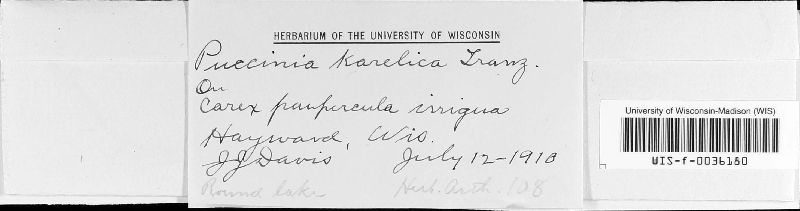 HERBARIUM OF THE UNIVERSITY OF WISCONSIN
Puccinia karelica Tranz.
On
Carex paupercula irrigua
Hayward, Wis.
JJ Davis July 12-1910
Round lake Herb. Arth. 108
University of Wisconsin-Madison (WIS)
WIS-f-0036180